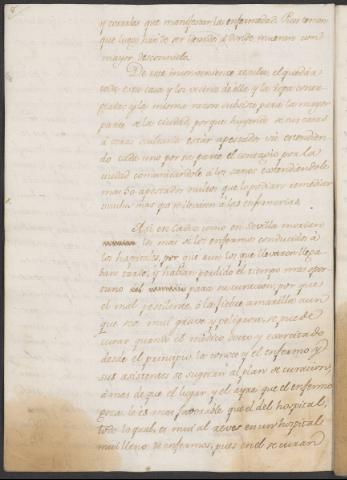 y cerrales que manifestar la enfermedad. Pues temen
que luego han de ser llevados a donde mueran con
mayor desconsuelo.
De este inconveniente resulta el quedar
toda esta casa y los vecinos de ella y la ropa
y la misma razon subsiste para la mayor
parte de la ciudad, porque huyendo de sus casas
a otras cuidando estar apestados van estendien-
do cada uno por su parte el contagio por la
ciudad comunicandole a los sanos estendiendole
mas los apestados ocultos que lo podian remediar
mas que se llevaran a las enfermerias.
Asi en Cadiz como en Sevilla murieron
los mas de los enfermos conducidos a
los hospitales, por que aun los que llevaron llega-
ban tarde, y habian perdido el tiempo mas opor-
tuno para su curacion, por que
el mal pestilente, o la fiebre amarilla aun
que sea mui grave y peligrosa, se puede
curar quando el medico docto y exercitado
desde el principio la conoce y el enfermo y
sus asistentes se sugetan al plan de curacion,
a mas de que el lugar y el ayre que el enfermo
goza le es mas favorable que el del hospital,
todo lo qual, es mui al reves en un hospital
mui lleno de enfermos, pues en el se curan